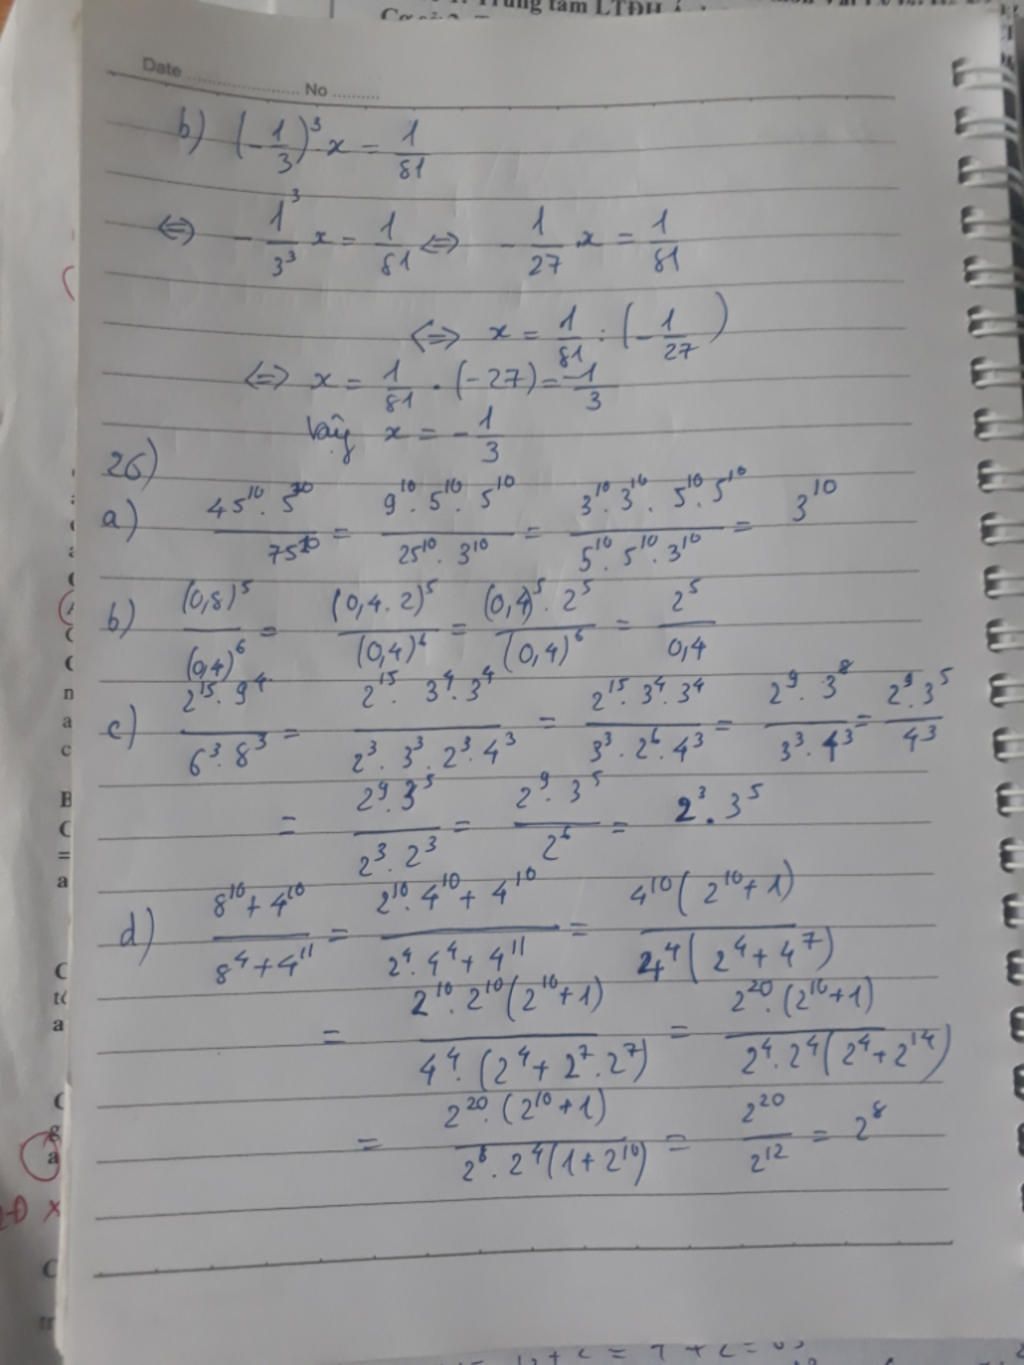 Trung tâm LTĐH
Date ........................ No .........
b) (-1/3)³ x = 1/81
⇔ -1³/3³ x = 1/81 ⇔ -1/27 x = 1/81
⇔ x = 1/81 : (-1/27)
⇔ x = 1/81 . (-27) = -1/3
Vậy x = -1/3
26)
a) 45¹⁰. 5²⁰/75²⁰ = 9¹⁰. 5¹⁰. 5¹⁰/25¹⁰. 3¹⁰ = 3¹⁰. 3¹⁰. 5¹⁰. 5¹⁰/5¹⁰. 5¹⁰. 3¹⁰ = 3¹⁰
b) (0,8)⁵/(0,4)⁶ = (0,4. 2)⁵/(0,4)⁶ = (0,4)⁵. 2⁵/(0,4)⁶ = 2⁵/0,4
c) 2¹⁵. 9⁴/6³. 8³ = 2¹⁵. 3⁴. 3⁴/2³. 3³. 2³. 4³ = 2¹⁵. 3⁴. 3⁴/3³. 2⁶. 4³ = 2⁹. 3⁸/3³. 4³ = 2⁹. 3⁵/4³
= 2⁹. 3⁵/2³. 2³ = 2⁹. 3⁵/2⁶ = 2³. 3⁵
d) 8¹⁰ + 4¹⁰/8⁴ + 4¹¹ = 2¹⁰. 4¹⁰ + 4¹⁰/2⁴. 4⁴ + 4¹¹ = 4¹⁰(2¹⁰ + 1)/4⁴(2⁴ + 4⁷)
= 2¹⁰. 2¹⁰(2¹⁰ + 1)/4⁴. (2⁴ + 2⁷. 2⁷) = 2²⁰. (2¹⁰ + 1)/2⁴. 2⁴(2⁴ + 2¹⁴)
= 2²⁰. (2¹⁰ + 1)/2⁸. 2⁴(1 + 2¹⁰) = 2²⁰/2¹² = 2⁸